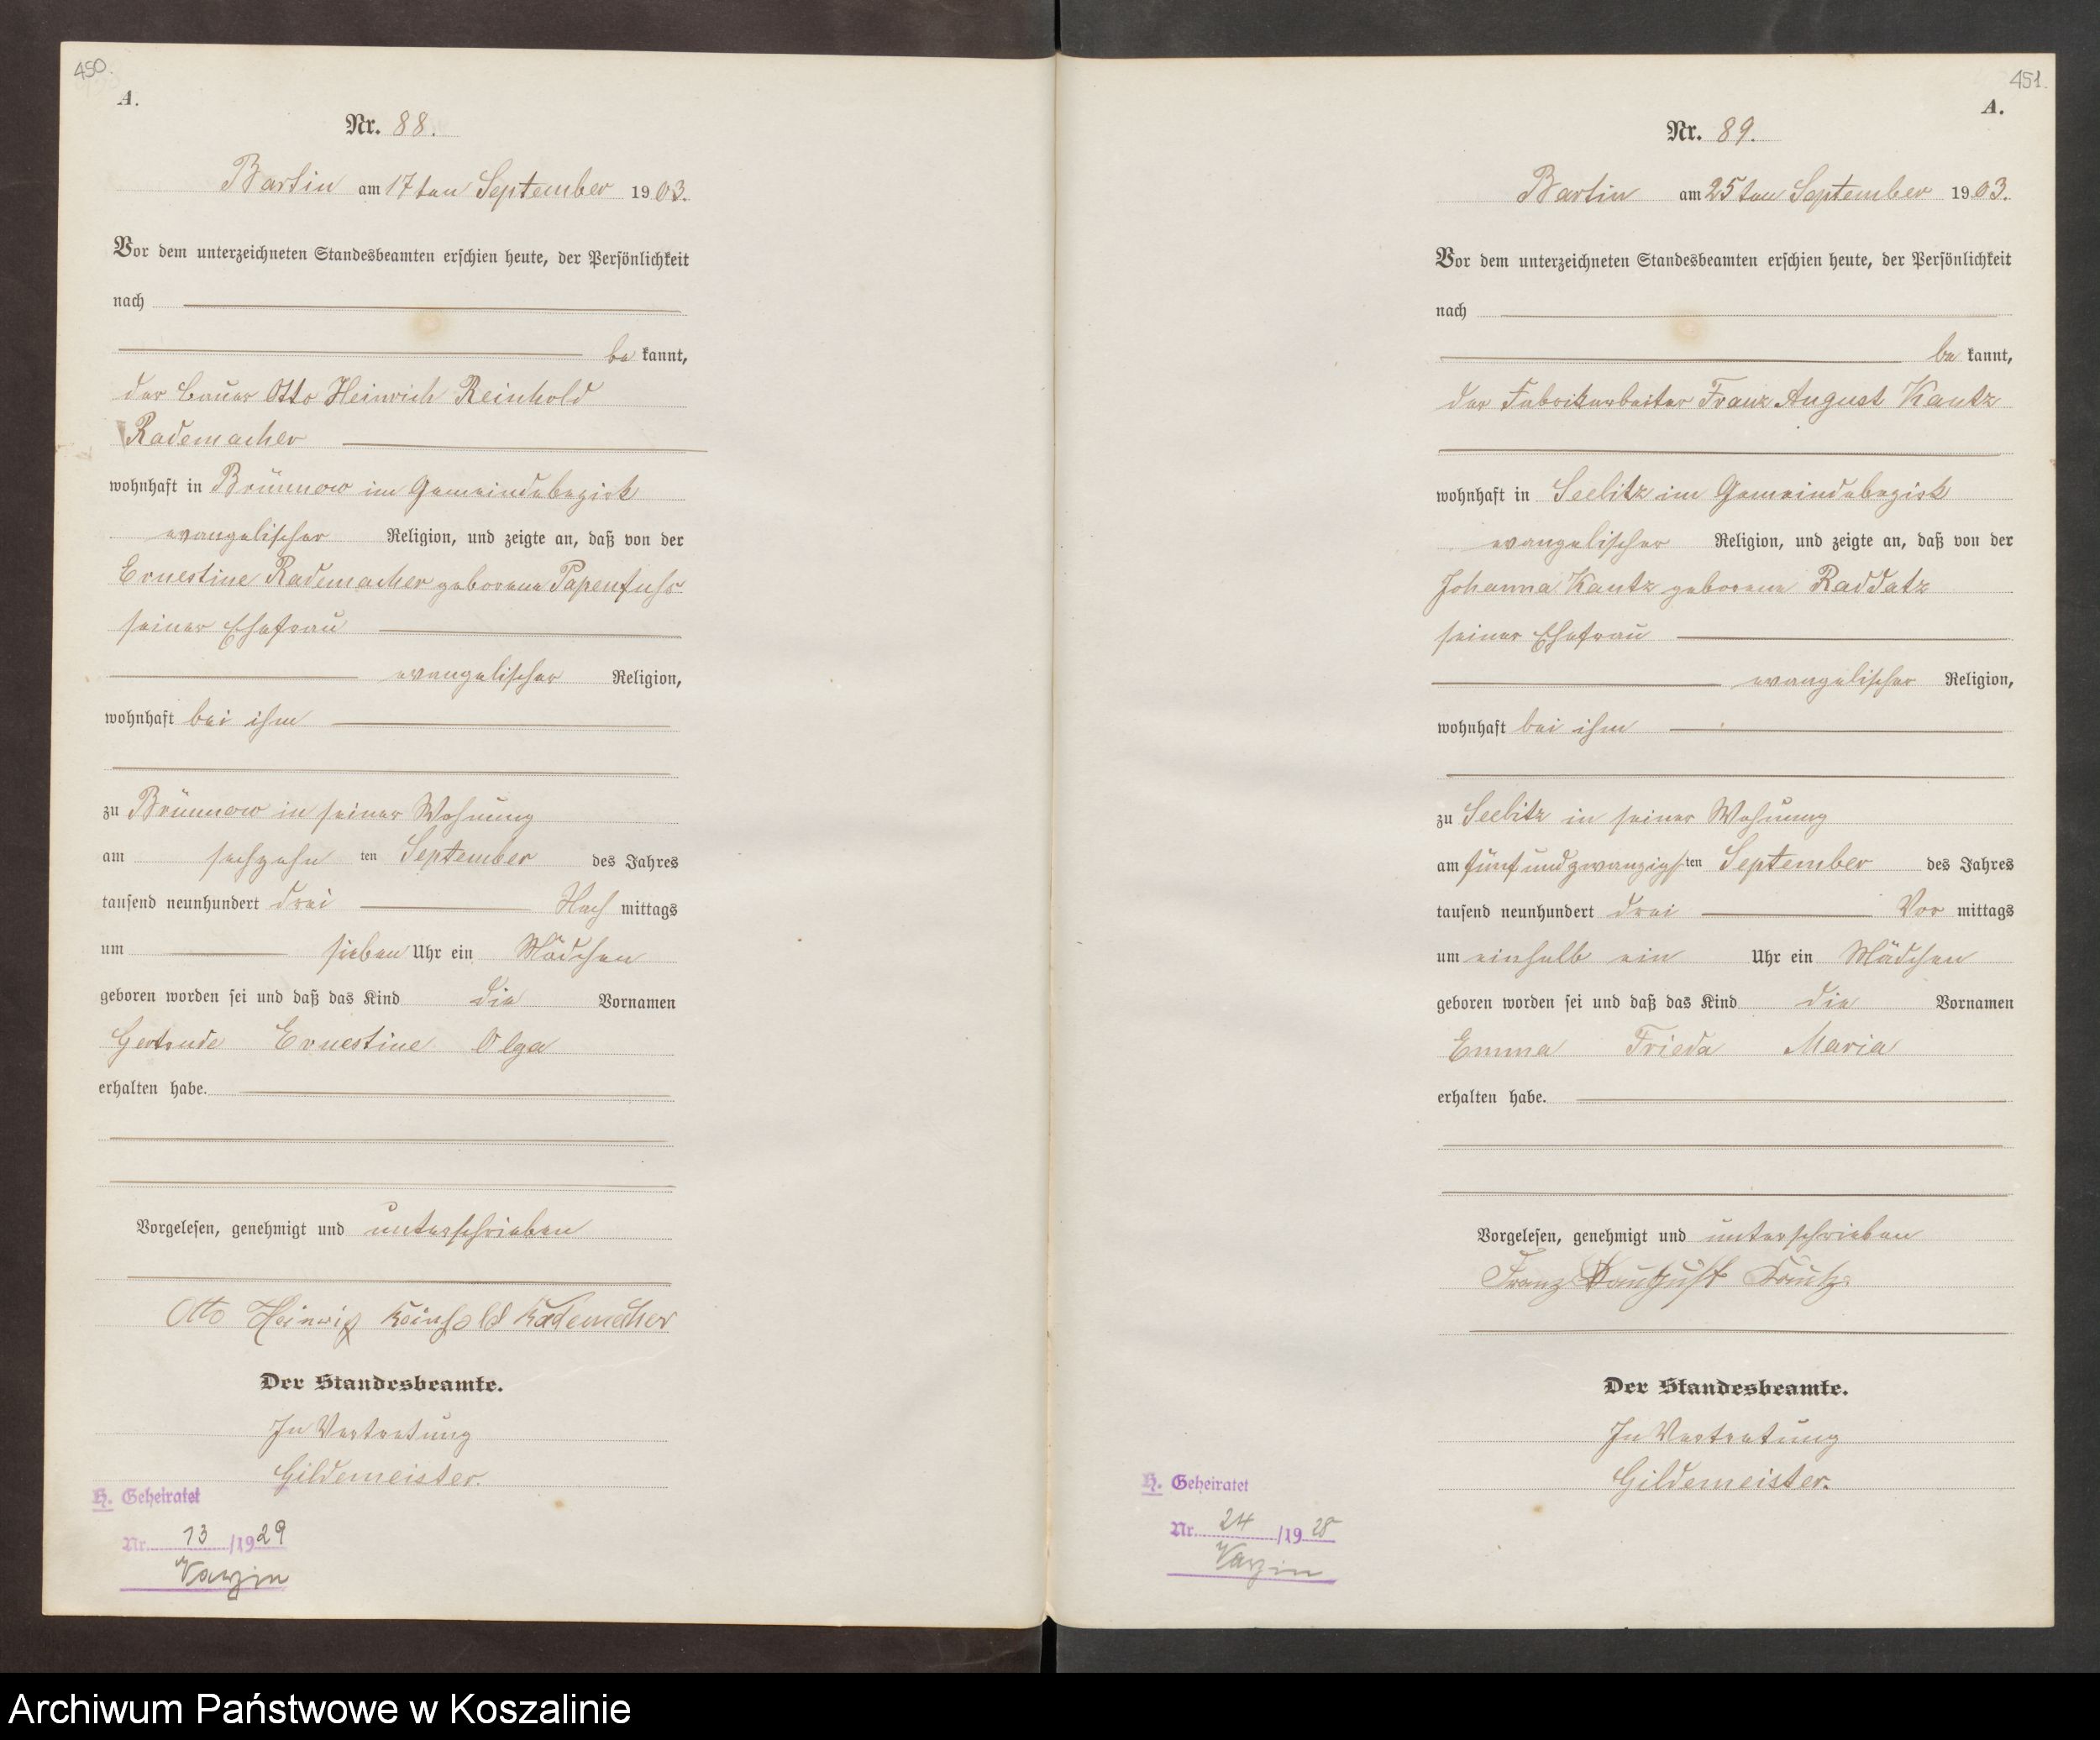 450.
A.
Nr. 88.
Bartin am 17ten September 1903.
Vor dem unterzeichneten Standesbeamten erschien heute, der Persönlichkeit
nach
be kannt,
der Bauer Otto Heinrich Reinhold
Rademacher
wohnhaft in Brünnow im Gemeindebezirk
evangelischer Religion, und zeigte an, daß von der
Ernestine Rademacher geborene Papenfuhs
seiner Ehefrau
evangelischer Religion,
wohnhaft bei ihm
zu Brünnow in seiner Wohnung
am sechzehn ten September des Jahres
tausend neunhundert drei Nach mittags
um sieben Uhr ein Mädchen
geboren worden sei und daß das Kind die Vornamen
Gertrude Ernestine Olga
erhalten habe.
Vorgelesen, genehmigt und unterschrieben
Otto Heinrich Reinhold Rademacher
Der Standesbeamte.
In Vertretung
Gildemeister.
H. Geheiratet
Nr. 13 /1929
Varzin
451.
A.
Nr. 89.
Bartin am 25ten September 1903.
Vor dem unterzeichneten Standesbeamten erschien heute, der Persönlichkeit
nach
be kannt,
der Fabrikarbeiter Franz August Kautz
wohnhaft in Seelitz im Gemeindebezirk
evangelischer Religion, und zeigte an, daß von der
Johanna Kautz geborene Raddatz
seiner Ehefrau
evangelischer Religion,
wohnhaft bei ihm
zu Seelitz in seiner Wohnung
am fünfundzwanzigsten September des Jahres
tausend neunhundert drei Vor mittags
um einhalb ein Uhr ein Mädchen
geboren worden sei und daß das Kind die Vornamen
Emma Frieda Maria
erhalten habe.
Vorgelesen, genehmigt und unterschrieben
Franz August Kautz
Der Standesbeamte.
In Vertretung
Gildemeister.
H. Geheiratet
Nr. 24 /1928
Varzin
Archiwum Państwowe w Koszalinie